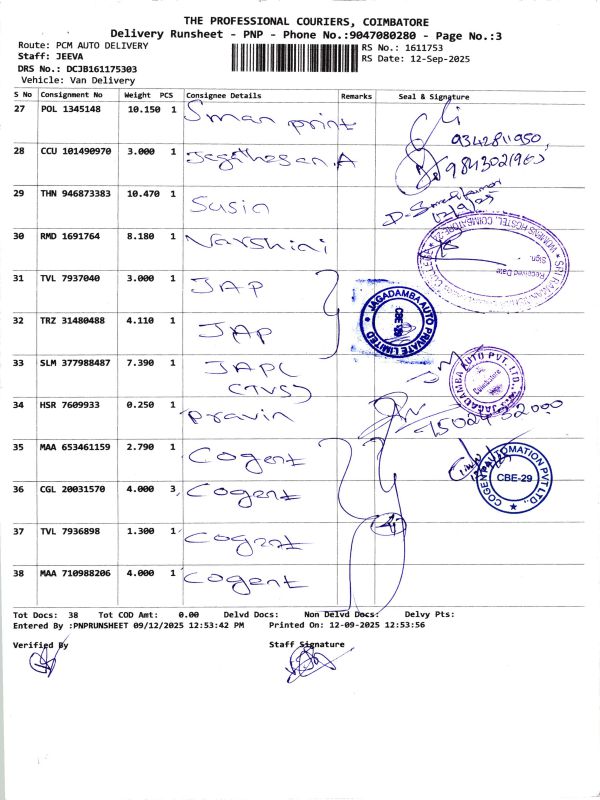 THE PROFESSIONAL COURIERS, COIMBATORE
Delivery Runsheet - PNP - Phone No.:9047080280 - Page No.:3
Route: PCM AUTO DELIVERY
Staff: JEEVA
DRS No.: DCJB161175303
Vehicle: Van Delivery
RS No.: 1611753
RS Date: 12-Sep-2025
S No Consignment No Weight PCS Consignee Details Remarks Seal & Signature
27 POL 1345148 10.150 1 Sman print
9342811950,
28 CCU 101490970 3.000 1 Jagathesan.A
29 THN 946873383 10.470 1 Susin
12/9/25
30 RMD 1691764 8.180 1 Varshini
Received Date
Sign.
31 TVL 7937040 3.000 1 JAP
JAGADAMBA AUTO PRIVATE LIMITED
CBE 29
32 TRZ 31480488 4.110 1 JAP
33 SLM 377988487 7.390 1 JAPL
(TVS)
JAGADAMBA AUTO PVT. LTD.
Coimbatore
34 HSR 7609933 0.250 1 Pravin
35 MAA 653461159 2.790 1 Cogent
COGENT AUTOMATION PVT LTD.,
CBE-29
36 CGL 20031570 4.000 3 Cogent
37 TVL 7936898 1.300 1 Cogent
38 MAA 710988206 4.000 1 Cogent
Tot Docs: 38 Tot COD Amt: 0.00 Delvd Docs: Non Delvd Docs: Delvy Pts:
Entered By :PNPRUNSHEET 09/12/2025 12:53:42 PM Printed On: 12-09-2025 12:53:56
Verified By Staff Signature